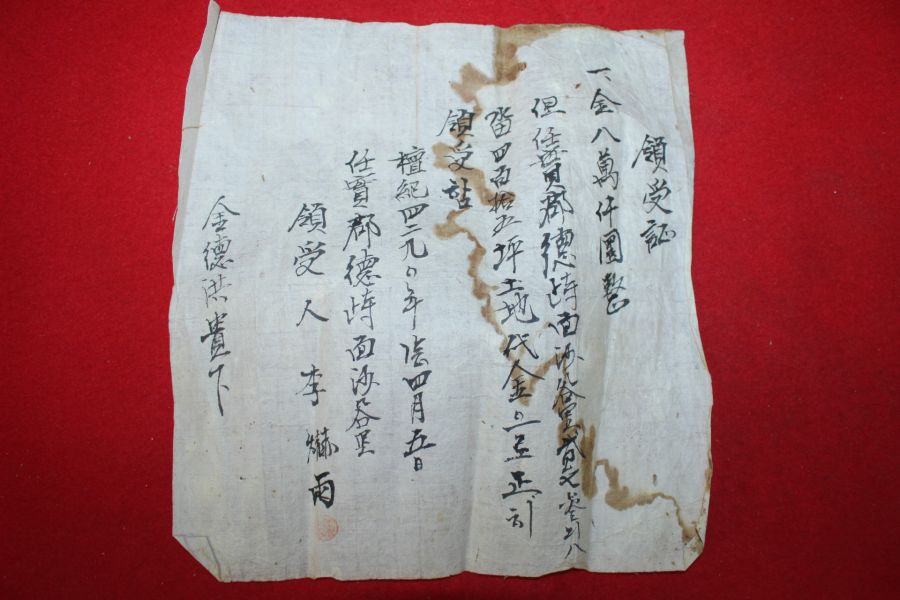 領受証
一、金八萬仟圜整
但任實郡德峙面沙谷里
畓四百拾五坪土地代金으로正히
領受함
檀紀四二九〇年陰四月五日
任實郡德峙面沙谷里
領受人 李 雨
金德洪 貴下